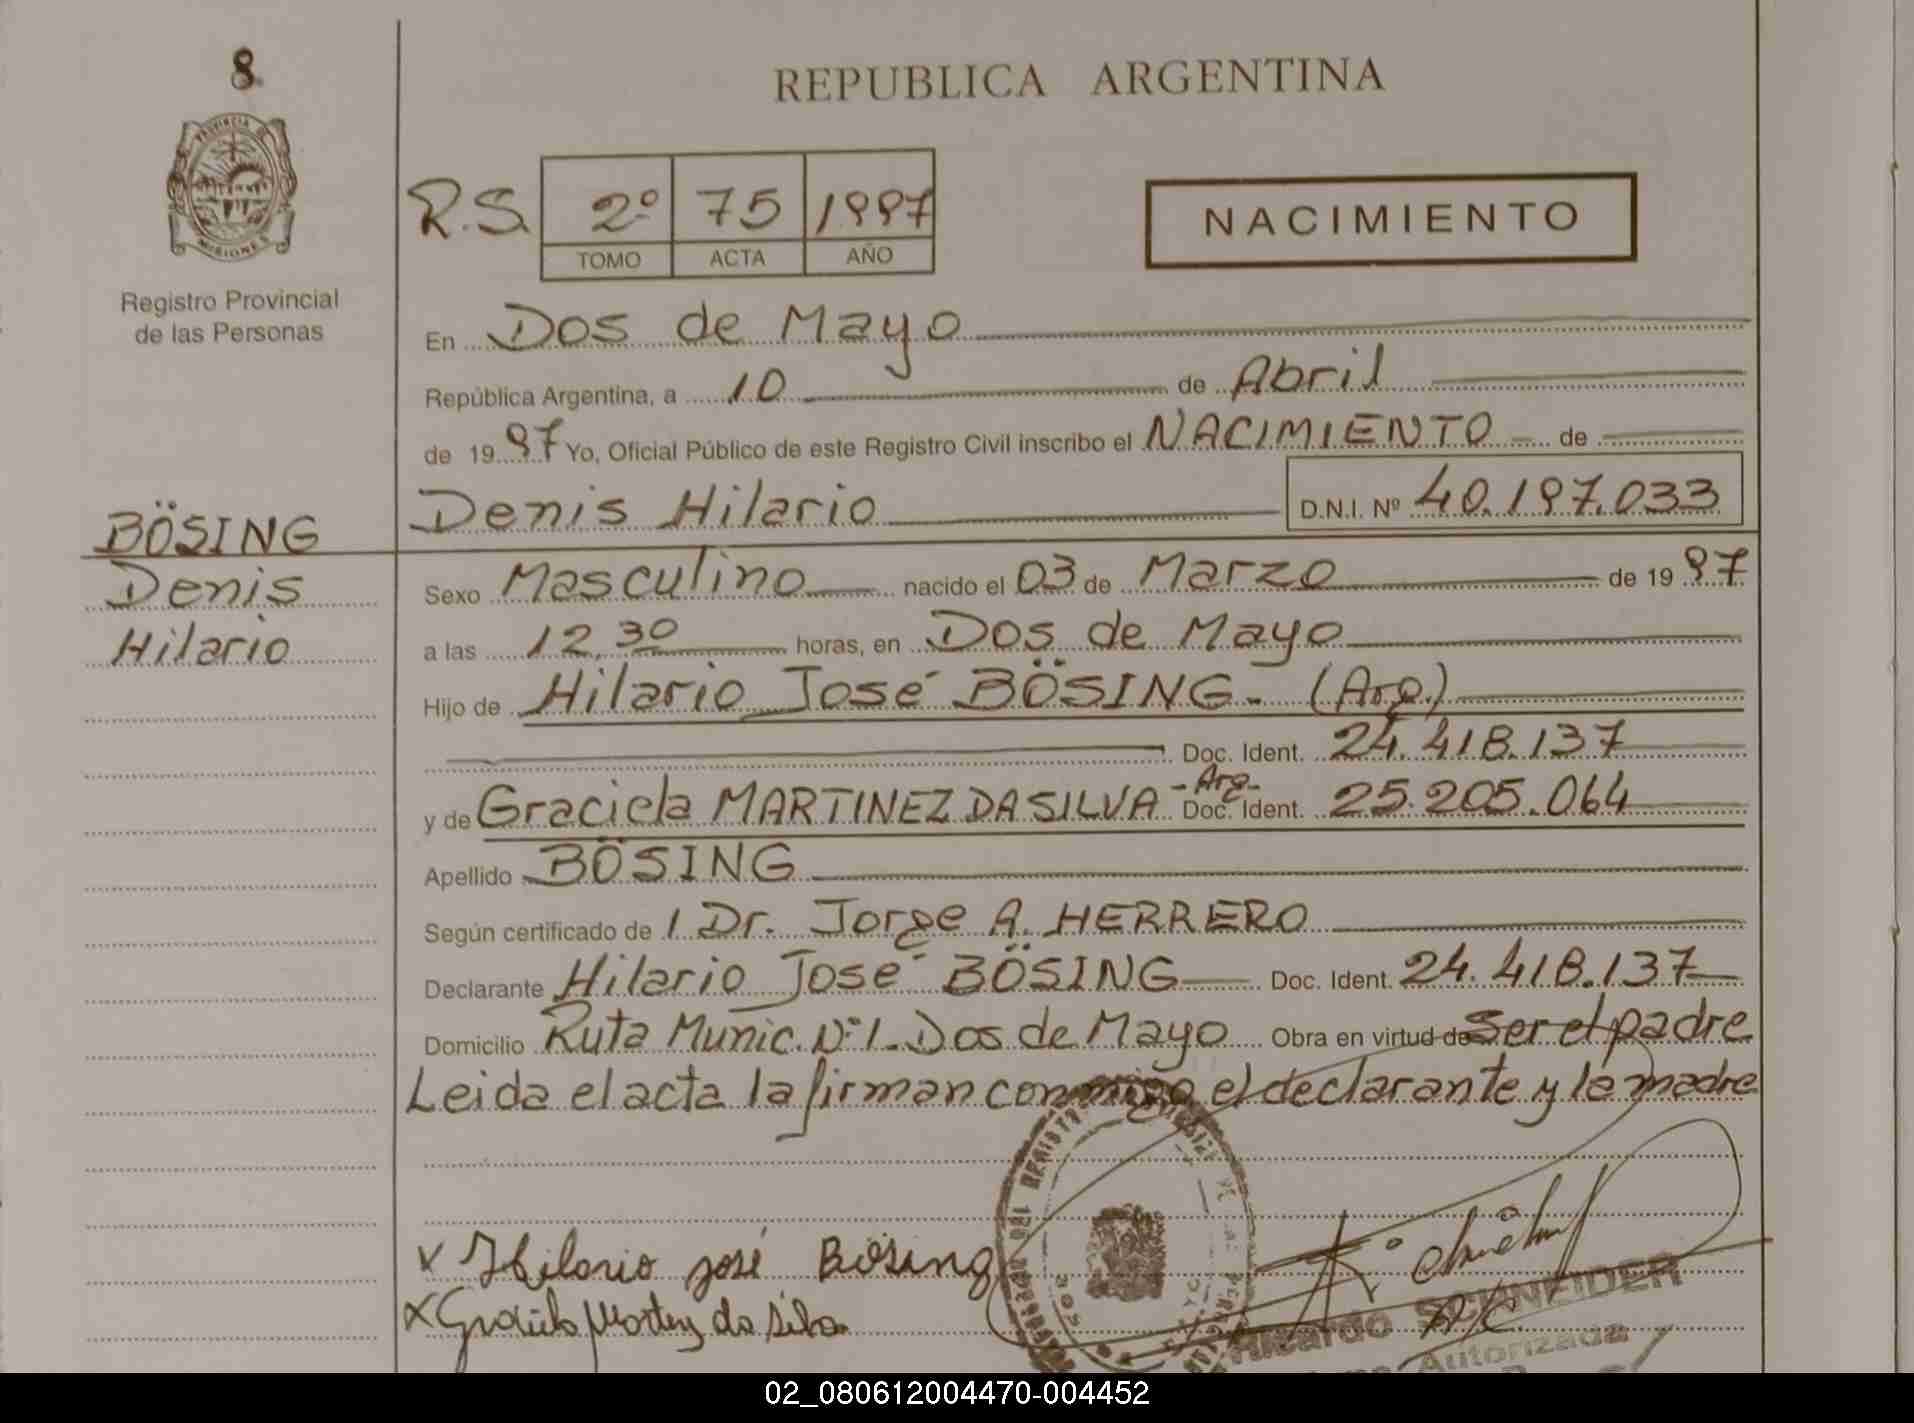 8
REPUBLICA ARGENTINA
PROVINCIA DE
MISIONES
Registro Provincial
de las Personas
R.S. 2º 75 1997
TOMO ACTA AÑO
NACIMIENTO
En Dos de Mayo
República Argentina, a 10 de Abril
de 1997 Yo, Oficial Público de este Registro Civil inscribo el NACIMIENTO de
Denis Hilario D.N.I. Nº 40.197.033
BÖSING
Denis
Hilario
Sexo Masculino nacido el 03 de Marzo de 1997
a las 12,30 horas, en Dos de Mayo
Hijo de Hilario José BÖSING - (Arg.)
Doc. Ident. 24.418.137
y de Graciela MARTINEZ DA SILVA - Arg - Doc. Ident. 25.205.064
Apellido BÖSING
Según certificado de / Dr. Jorge A. HERRERO
Declarante Hilario José BÖSING Doc. Ident. 24.418.137
Domicilio Ruta Munic. Nº 1. Dos de Mayo Obra en virtud de ser el padre
Leida el acta la firman conmigo el declarante y la madre
x Hilario josé Bösing
x Graciela Martinez da Silva
Ricardo SCHNEIDER
Autorizada
02_080612004470-004452